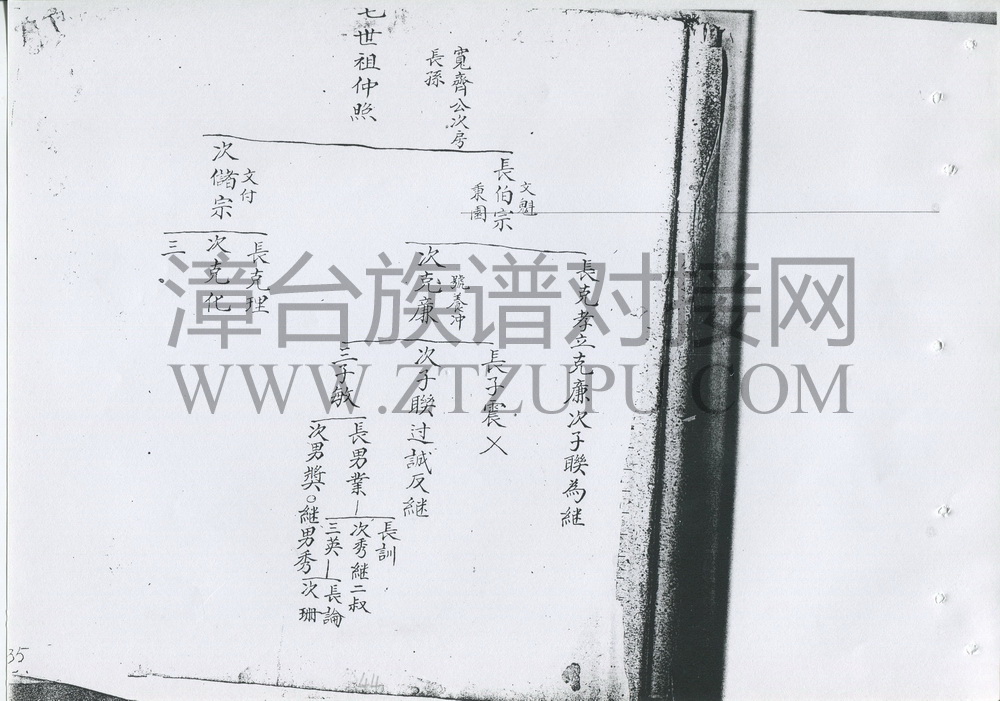 寬齊公次房
長孫
七世祖仲照
長伯宗
文魁
次儲宗
文付
長克孝立克廉次子聯為継
次克廉
號養沖
長克理
次克化
三
長子震乂
次子聯过誠反継
三子敏
長男業
次男奬○継男秀
長訓
次秀継二叔
三英
長論
次珊
漳台族谱对接网
WWW.ZTZUPU.COM
35